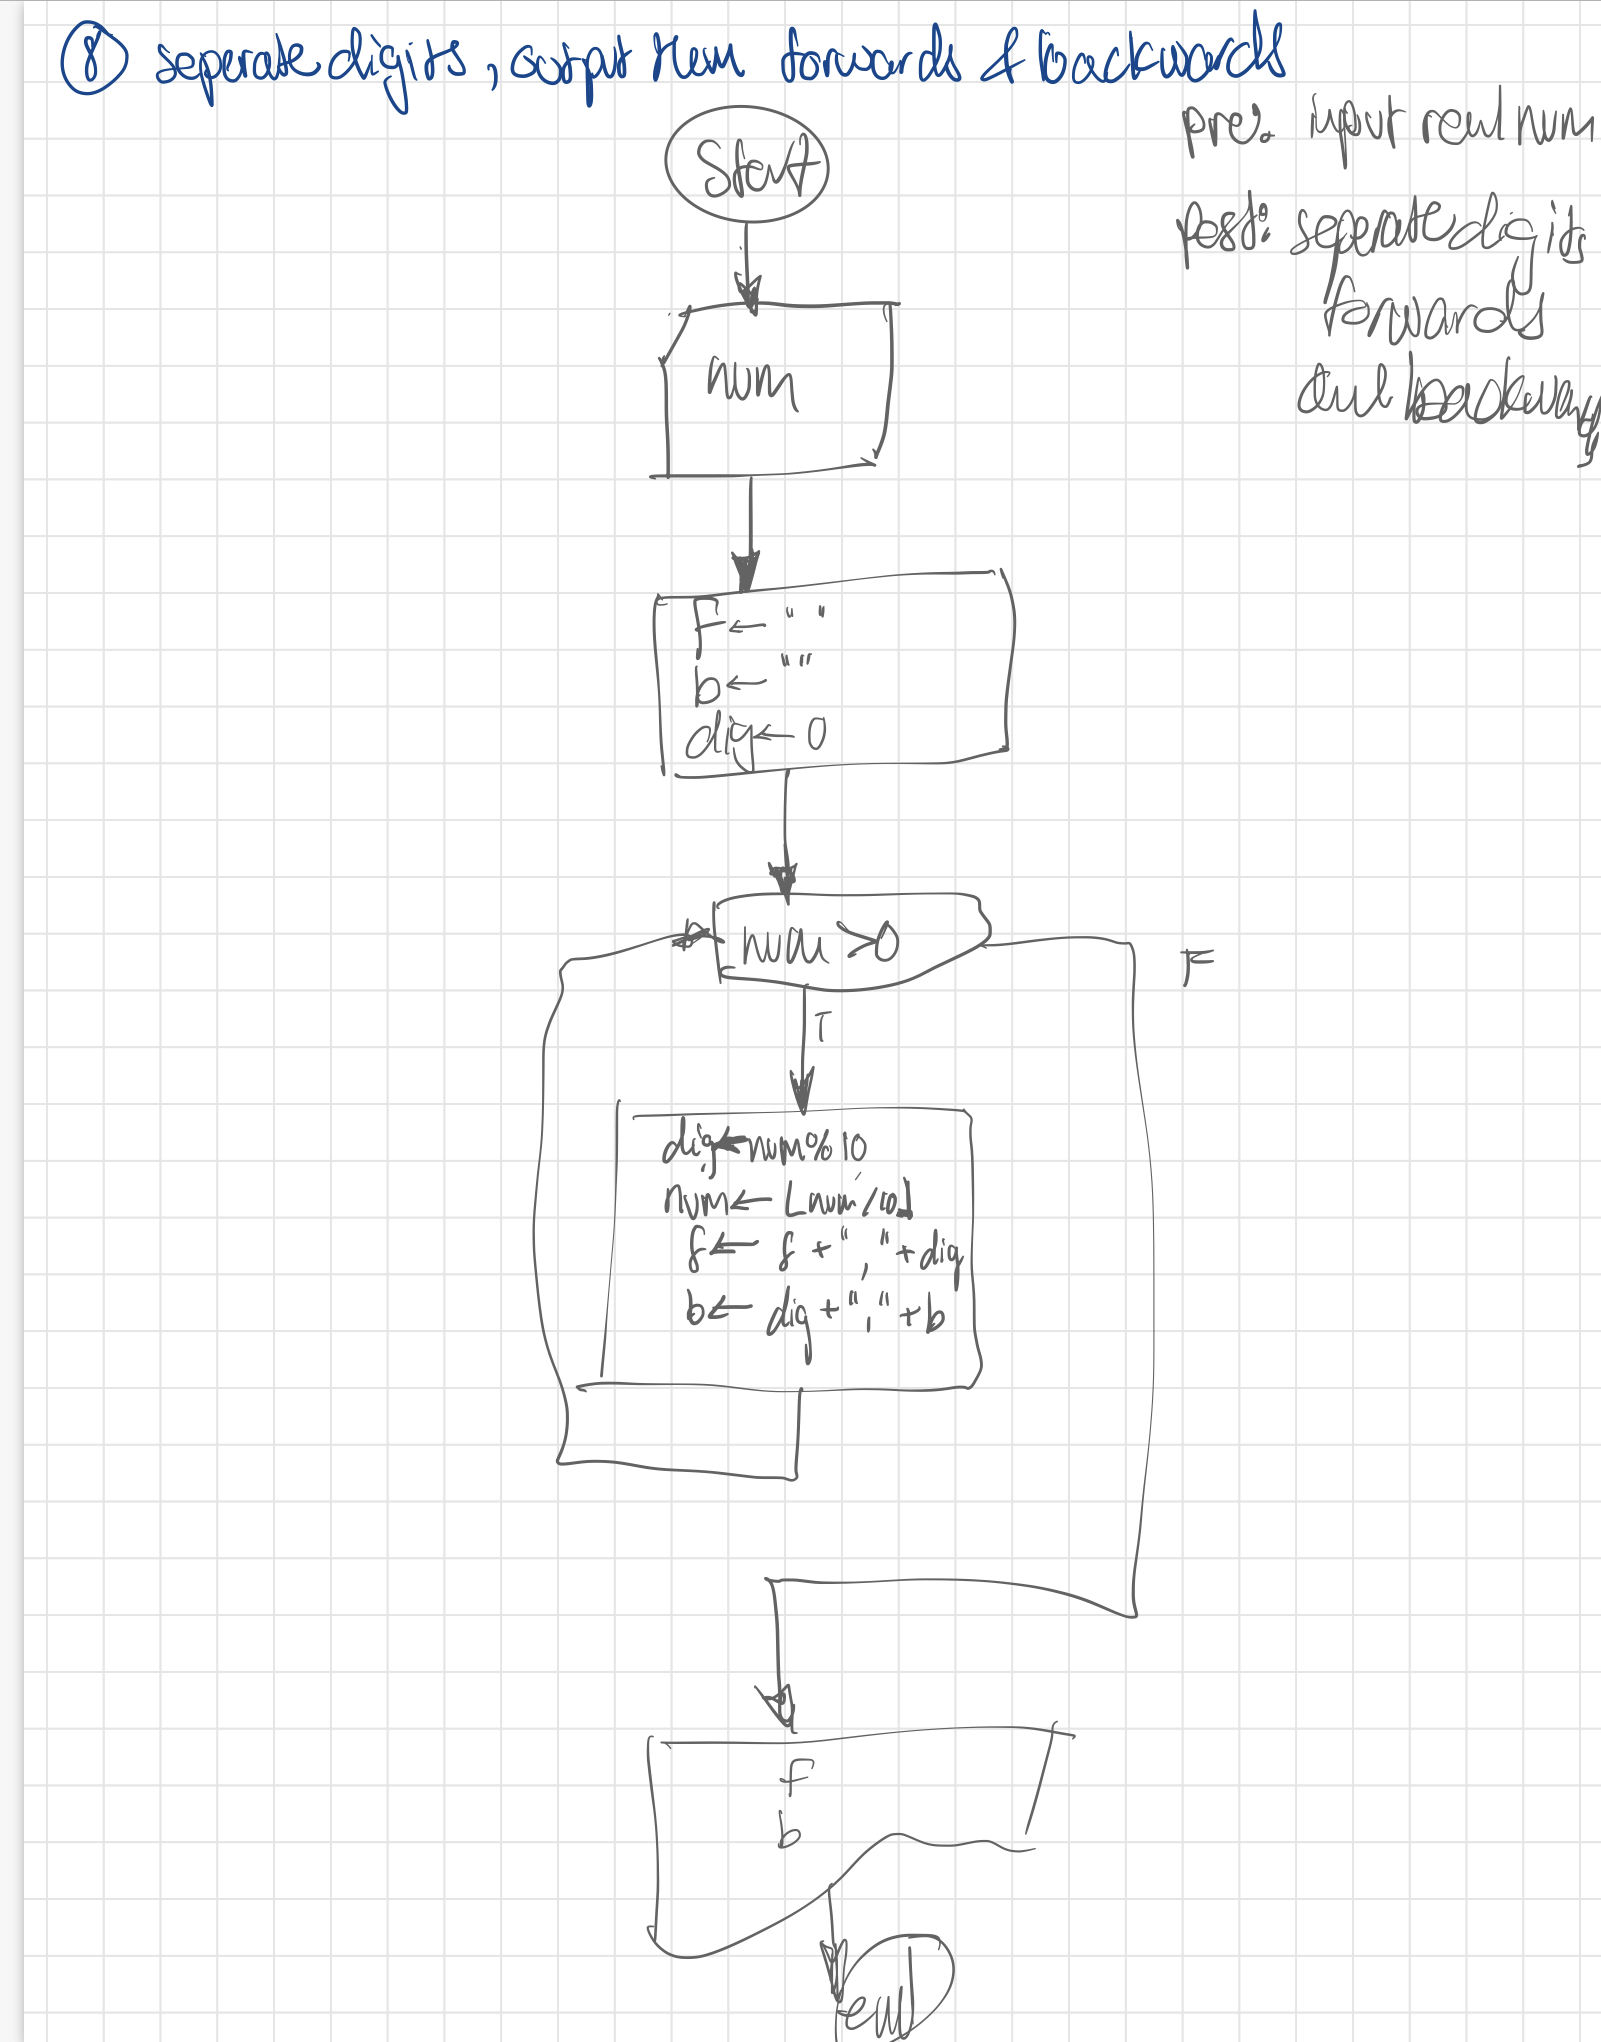 8 seperate digits, output them forwards & backwards
pre: input real num
post: seperate digits
forwards
and backwards
Start
num
F ← " "
b ← " "
dig ← 0
num > 0
F
T
dig ← num % 10
num ← ⌊num/10⌋
f ← f + "," + dig
b ← dig + "," + b
f
b
end